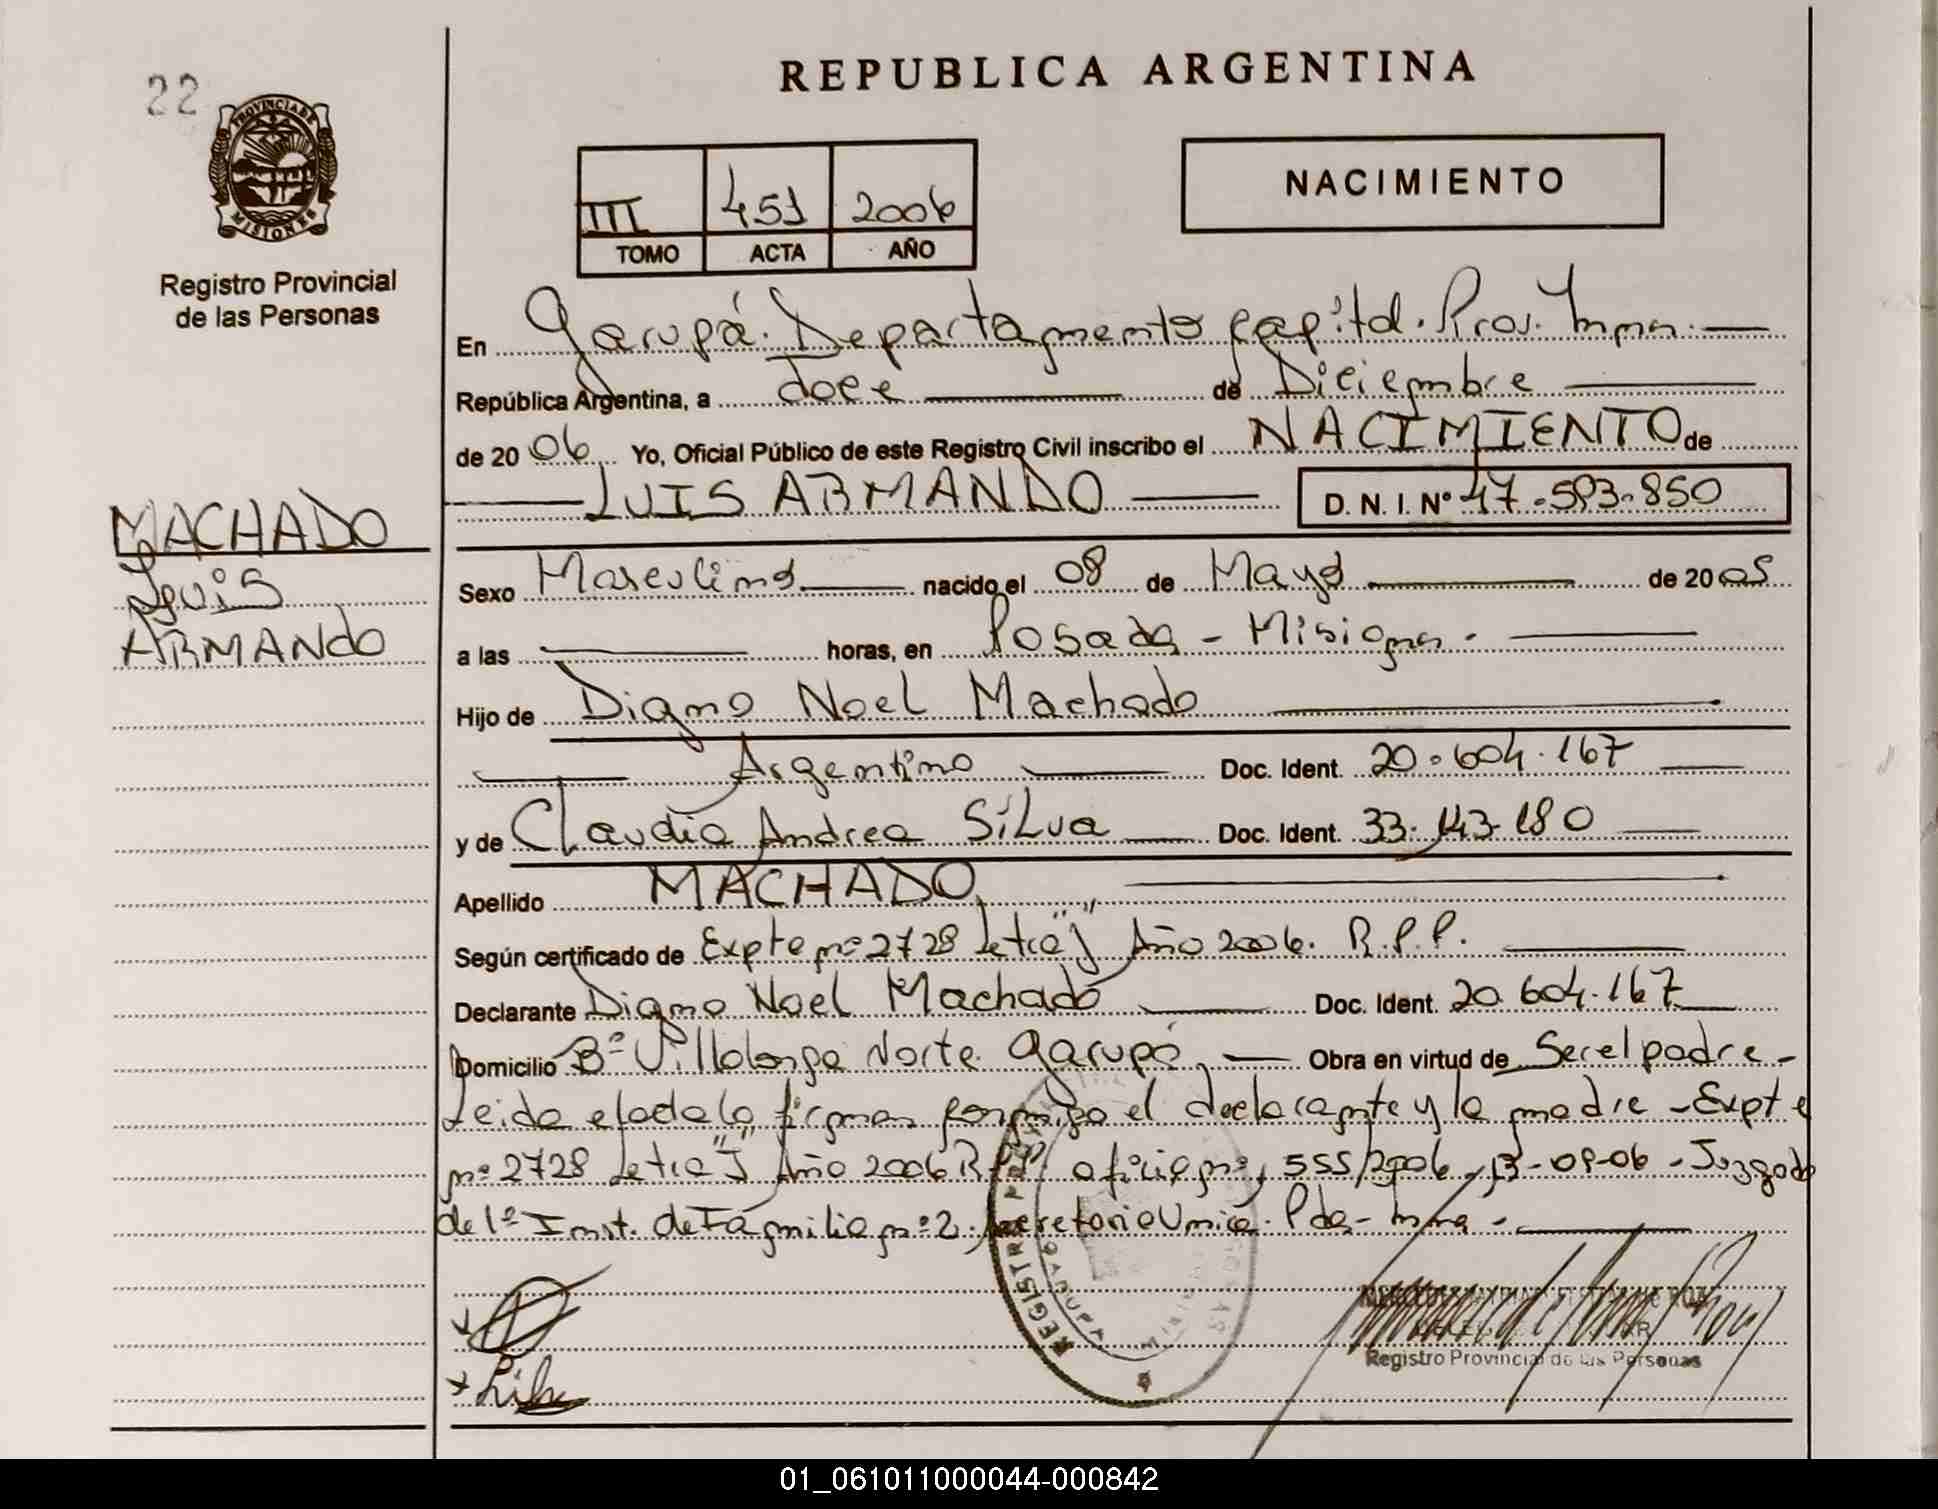 REPUBLICA ARGENTINA
22
PROVINCIA DE
MISIONES
Registro Provincial
de las Personas
III 451 2006
TOMO ACTA AÑO
NACIMIENTO
En Garupá. Departamento Capital. Prov. Mnes.
República Argentina, a doce de Diciembre
de 2006 Yo, Oficial Público de este Registro Civil inscribo el NACIMIENTO de
LUIS ARMANDO D. N. I. Nº 47.593.850
MACHADO
Luis
ARMANDO
Sexo Masculino nacido el 08 de Mayo de 2005
a las horas, en Posadas - Misiones.
Hijo de Digno Noel Machado
Argentino Doc. Ident. 20.604.167
y de Claudia Andrea SiLva Doc. Ident. 33.143.180
Apellido MACHADO
Según certificado de Expte nº 2728 Letra "J" Año 2006. R.P.P.
Declarante Digno Noel Machado Doc. Ident. 20.604.167
Domicilio Bº Villalonga Norte. Garupá Obra en virtud de Ser el padre -
Leida el acta la firman conmigo el declarante y la madre - Expte
nº 2728 Letra "J" Año 2006 R.P.P. oficio nº 555/2006 13-09-06 - Juzgado
de 1º Inst. de Familia nº 2. Secretaria Unica. Pdas - Mnes -
REGISTRO
GARUPA
Registro Provincial de las Personas
01_061011000044-000842